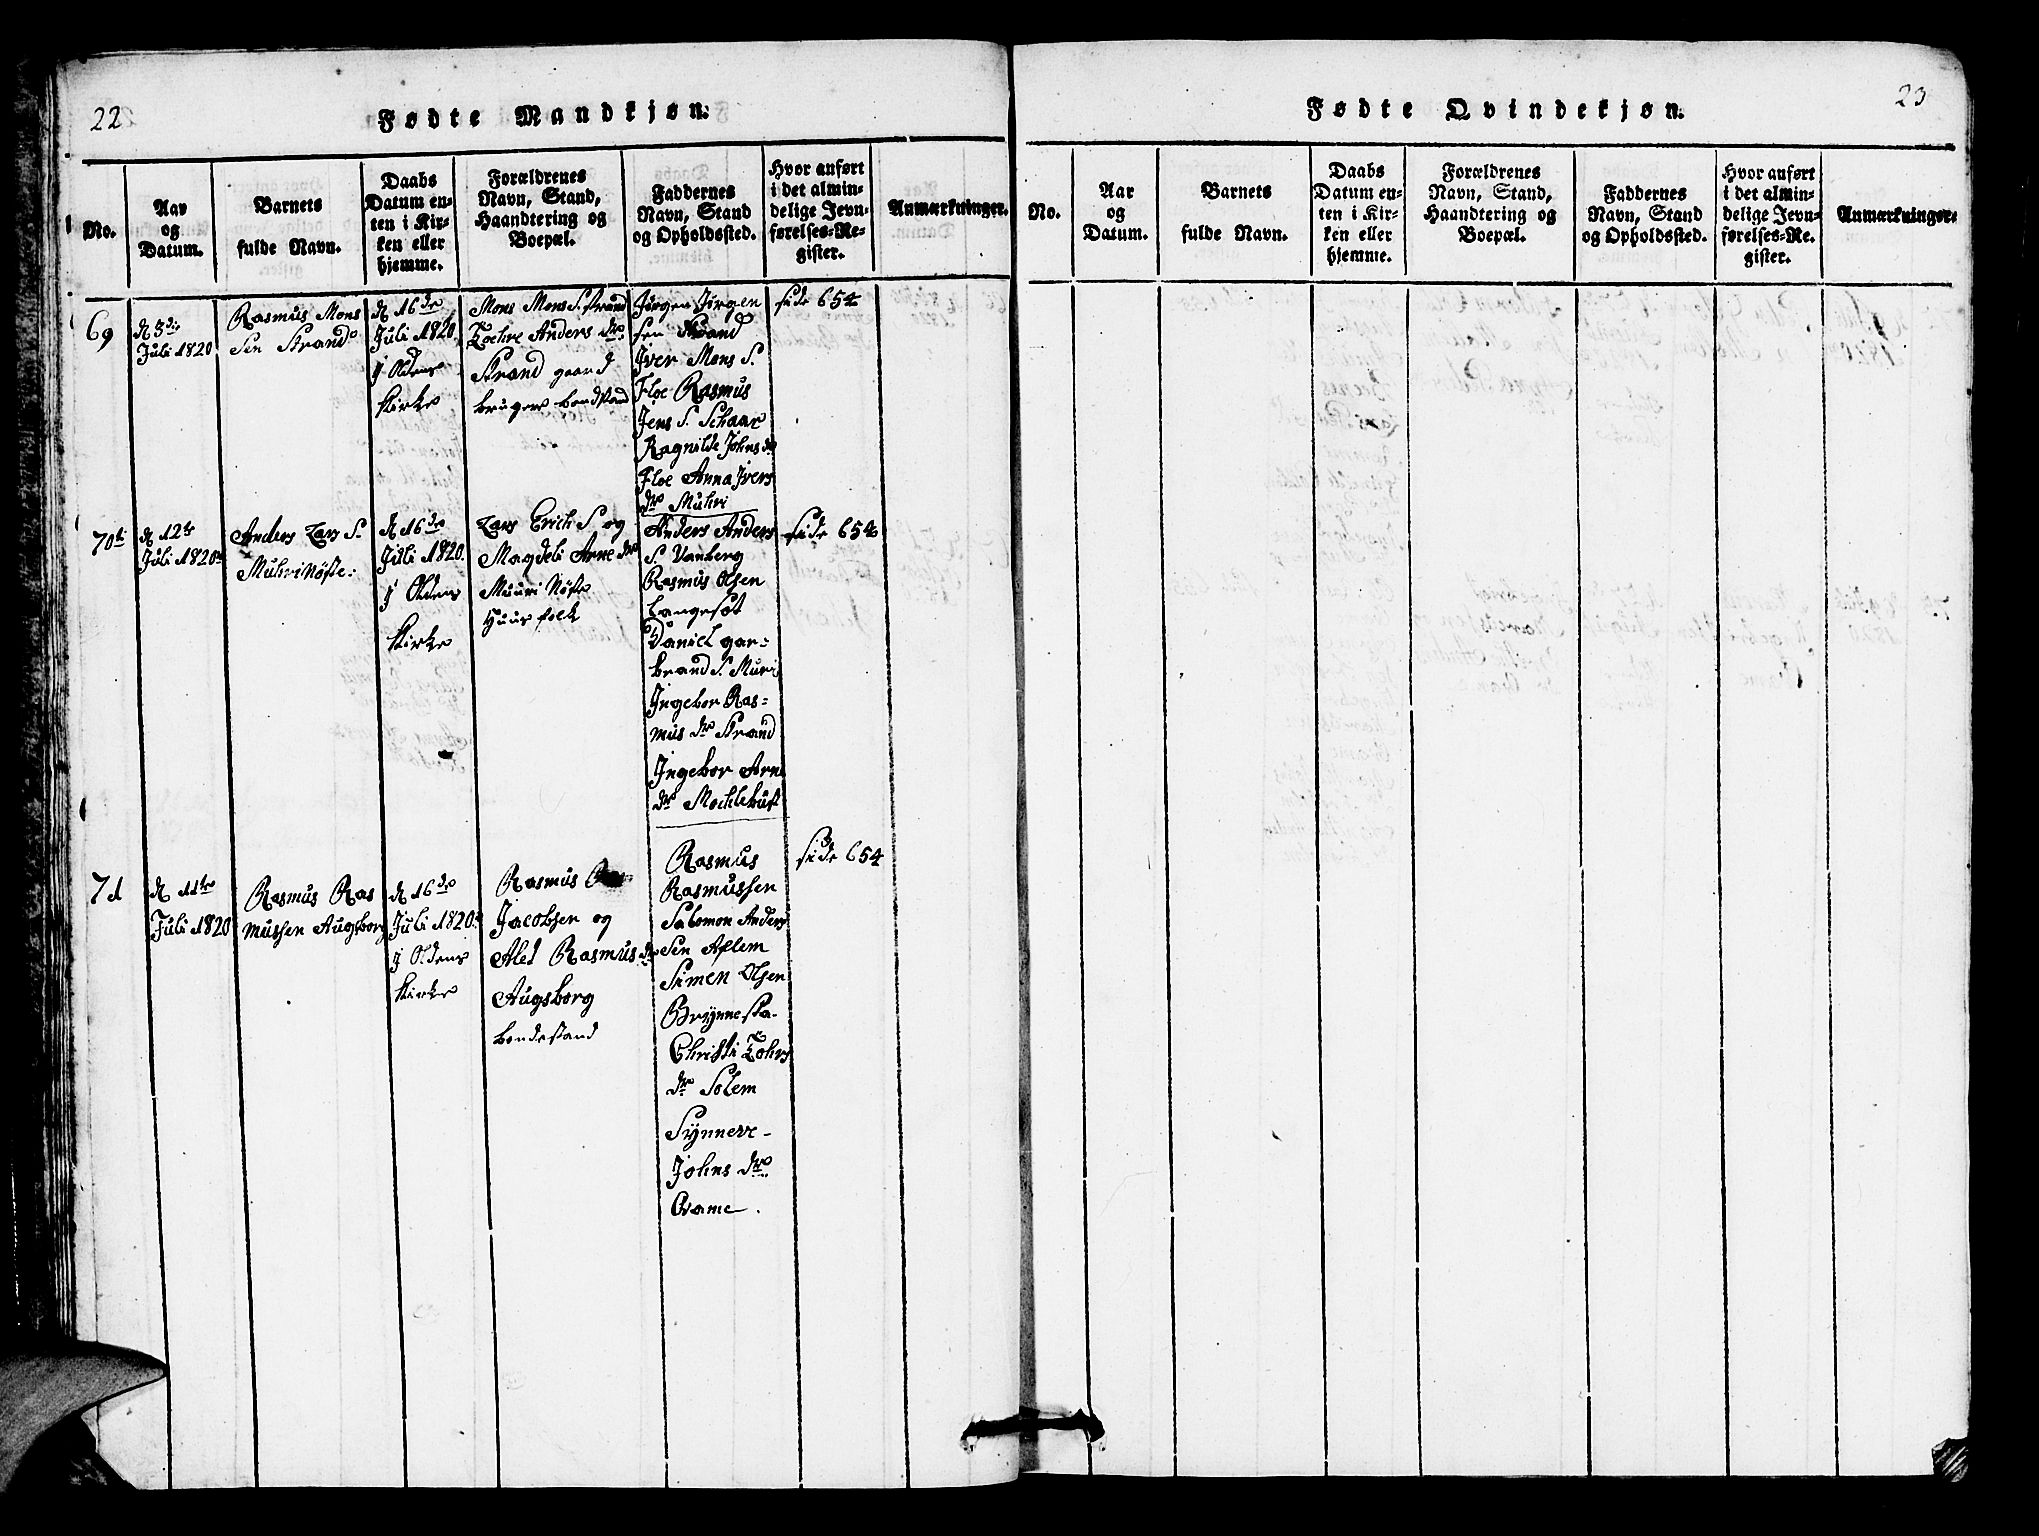 22
Fødte Mandkjøn.
No.
Aar
og
Datum.
Barnets
fulde Navn.
Daabs
Datum en-
ten i Kir-
ken eller
hjemme.
Forældrenes
Navn, Stand,
Haandtering og
Boepæl.
Faddernes
Navn, Stand
og Opholdssted.
Hvor anført
i det almin-
delige Jevn-
førelses-Re-
gister.
Anmærkninger.
69
d 3die
Juli 1820
Rasmus Mons
Sen Strand
d 16de
Juli 1820
i Olden
Kirke
Mons Mons S. Strand
Anders dr
Strand gaard
bruger bondstand
Jørgen Jørgen
sen Strand
Iver Mons S.
Floe Rasmus
Jens S. Schaar
Ragnilde Johns dr
Floe Anna Ivers
dr Muhri
side 654
70ti
d 12te
Juli 1820
Anders Lars S.
Muhri Nøste
d 16de
Juli 1820
i Olden
Kirke
Lars Erich S. og
Magdeli Arne dr
Muuri Nøste
Huus folk
Anders Anders
S. Vanberg
Rasmus Olsen
Langesøt
Daniel gar-
brand S. Muri
Ingebor Ras-
mus dr Strand
Ingebor Arne
dr Mochlebust
side 654
71
d 11te
Juli 1820
Rasmus Ras
mussen Augsborg
d 16de
Juli 1820
i Olden
Kirke
Rasmus
Jacobsen og
Aled Rasmus dr
Augsborg
bondestand
Rasmus
Rasmussen
Salomon Anders
Sen Aflem
Simen Olsen
Brynnesta
Christi
dr Solem
Synneve
Johns dr
Qvame
side 654
23
Fødte Qvindekjøn.
No.
Aar
og
Datum.
Barnets
fulde Navn.
Daabs
Datum en-
ten i Kir-
ken eller
hjemme.
Forældrenes
Navn, Stand,
Haandtering og
Boepæl.
Faddernes
Navn, Stand
og Opholdssted.
Hvor anført
i det almin-
delige Jevn-
førelses-Re-
gister.
Anmærkninger.